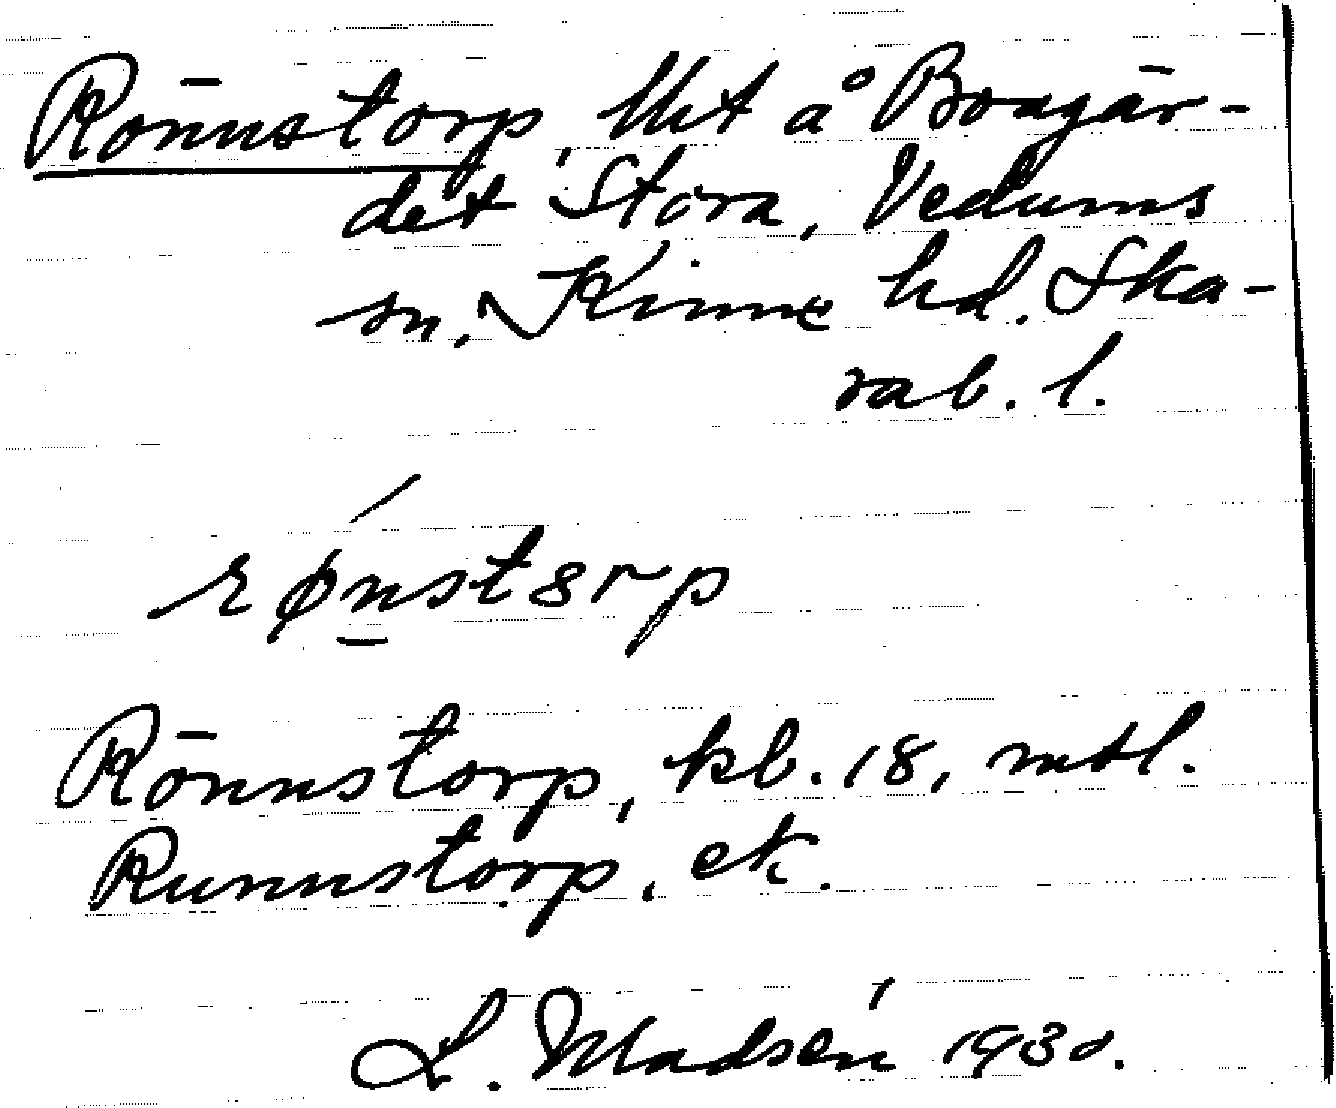 Rönnstorp, lht å Bongär-
det Stora, Vedums
sn, Kinne hd. Ska-
rab. l.
rønstørp
Rönnstorp, kb. 18, mtl.
Runnstorp, ek.
L. Madsén 1930.